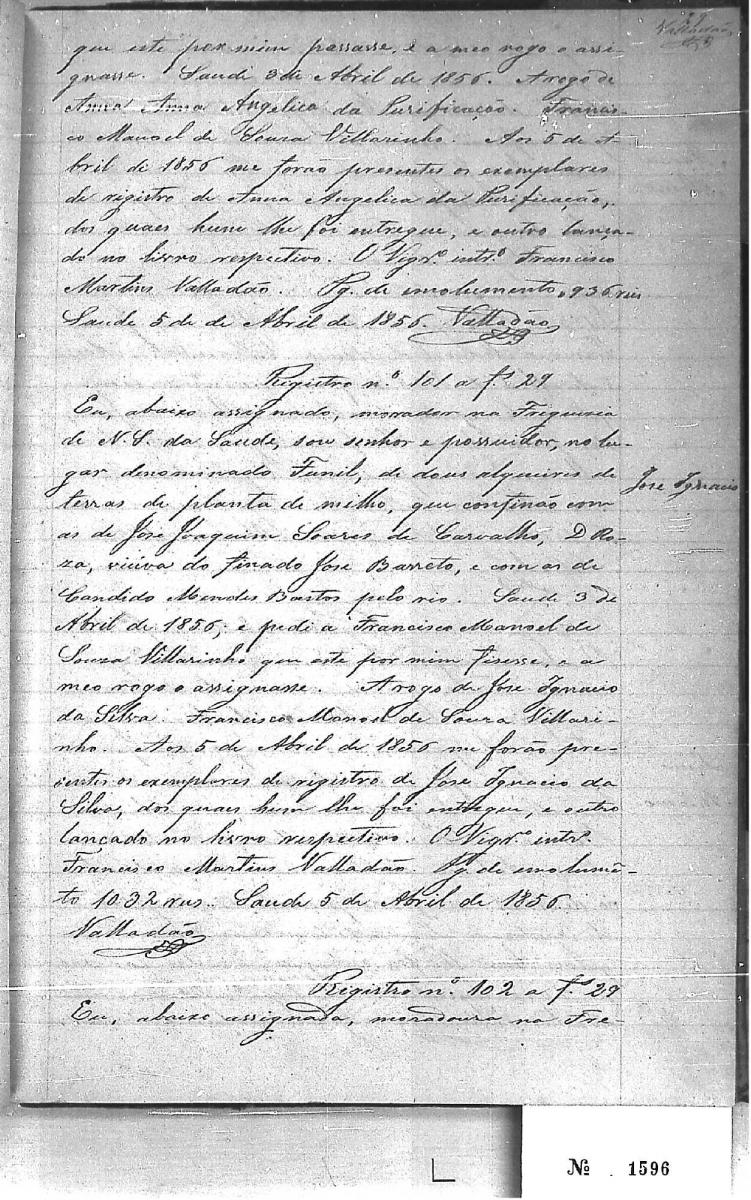 29
Valladão
que este por mim passasse, e a meo rogo o assi-
gnasse. Saude 3 de Abril de 1856. A rogo de
Anna Anna Angelica da Purificação. Francis-
co Manoel de Souza Villarinho. Aos 5 de A-
bril de 1856 me forão presentes os exemplares
de registro de Anna Angelica da Purificação,
dos quaes hum lhe foi entregue, e outro lança-
do no livro respectivo. O Vigr.º intr.º Francisco
Martins Valladão. Pg. de emolumento 936 reis
Saude 5 de de Abril de 1856. Valladão
Registro n.º 101 a f.s 29
Eu, abaixo assignado, morador na Freguezia
de N. S. da Saude, sou senhor e possuidor, no lu-
gar denominado Funil, de dous alqueires de
José Ignacio
terras de planta de milho, que confinão com
as de José Joaquim Soares de Carvalho, D. Ro-
za, viúva do finado José Barreto, e com as de
Candido Mendes Bastos pelo rio. Saude 3 de
Abril de 1856; e pedi a Francisco Manoel de
Souza Villarinho que este por mim fisesse, e a
meo rogo o assignasse. A rogo de José Ignacio
da Silva. Francisco Manoel de Souza Villari-
nho. Aos 5 de Abril de 1856 me forão pre-
sentes os exemplares de registro de José Ignacio da
Silva, dos quaes hum lhe foi entregue, e outro
lançado no livro respectivo. O Vigr.º intr.º
Francisco Martins Valladão. Pg. de emolumē-
to 1032 reis. Saude 5 de Abril de 1856.
Valladão
Registro n.º 102 a f.s 29
Eu, abaixo assignada, moradoura na Fre-
Nº 1596